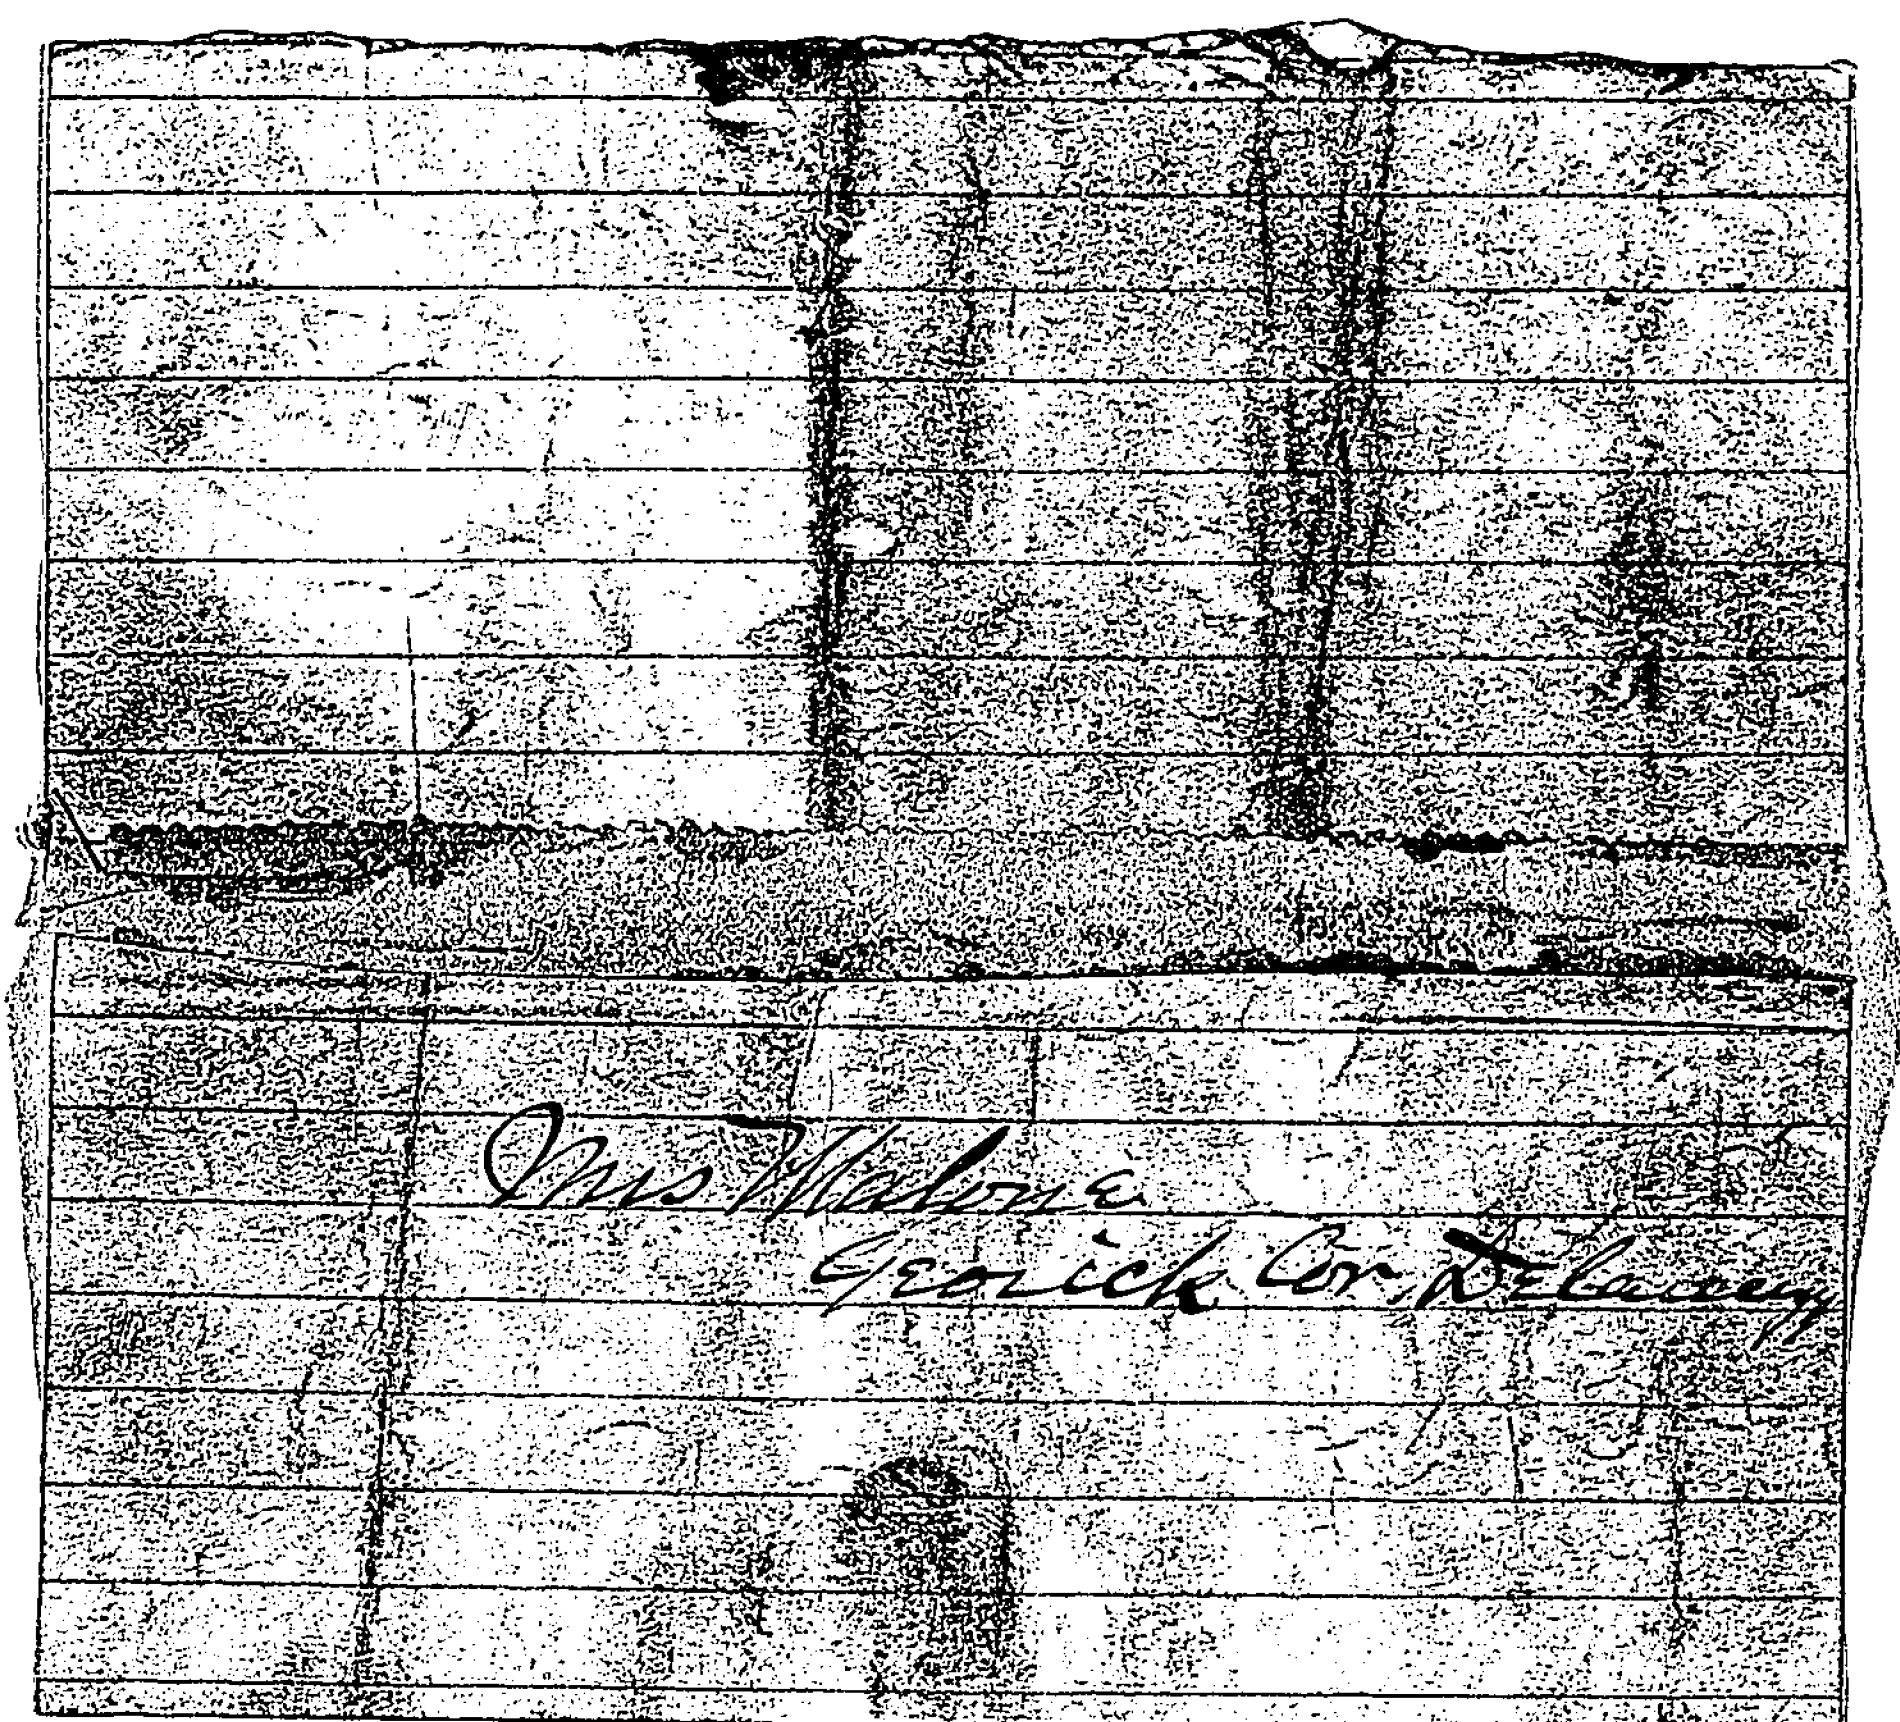 Mrs Malone
Gerick Cor. Delancey